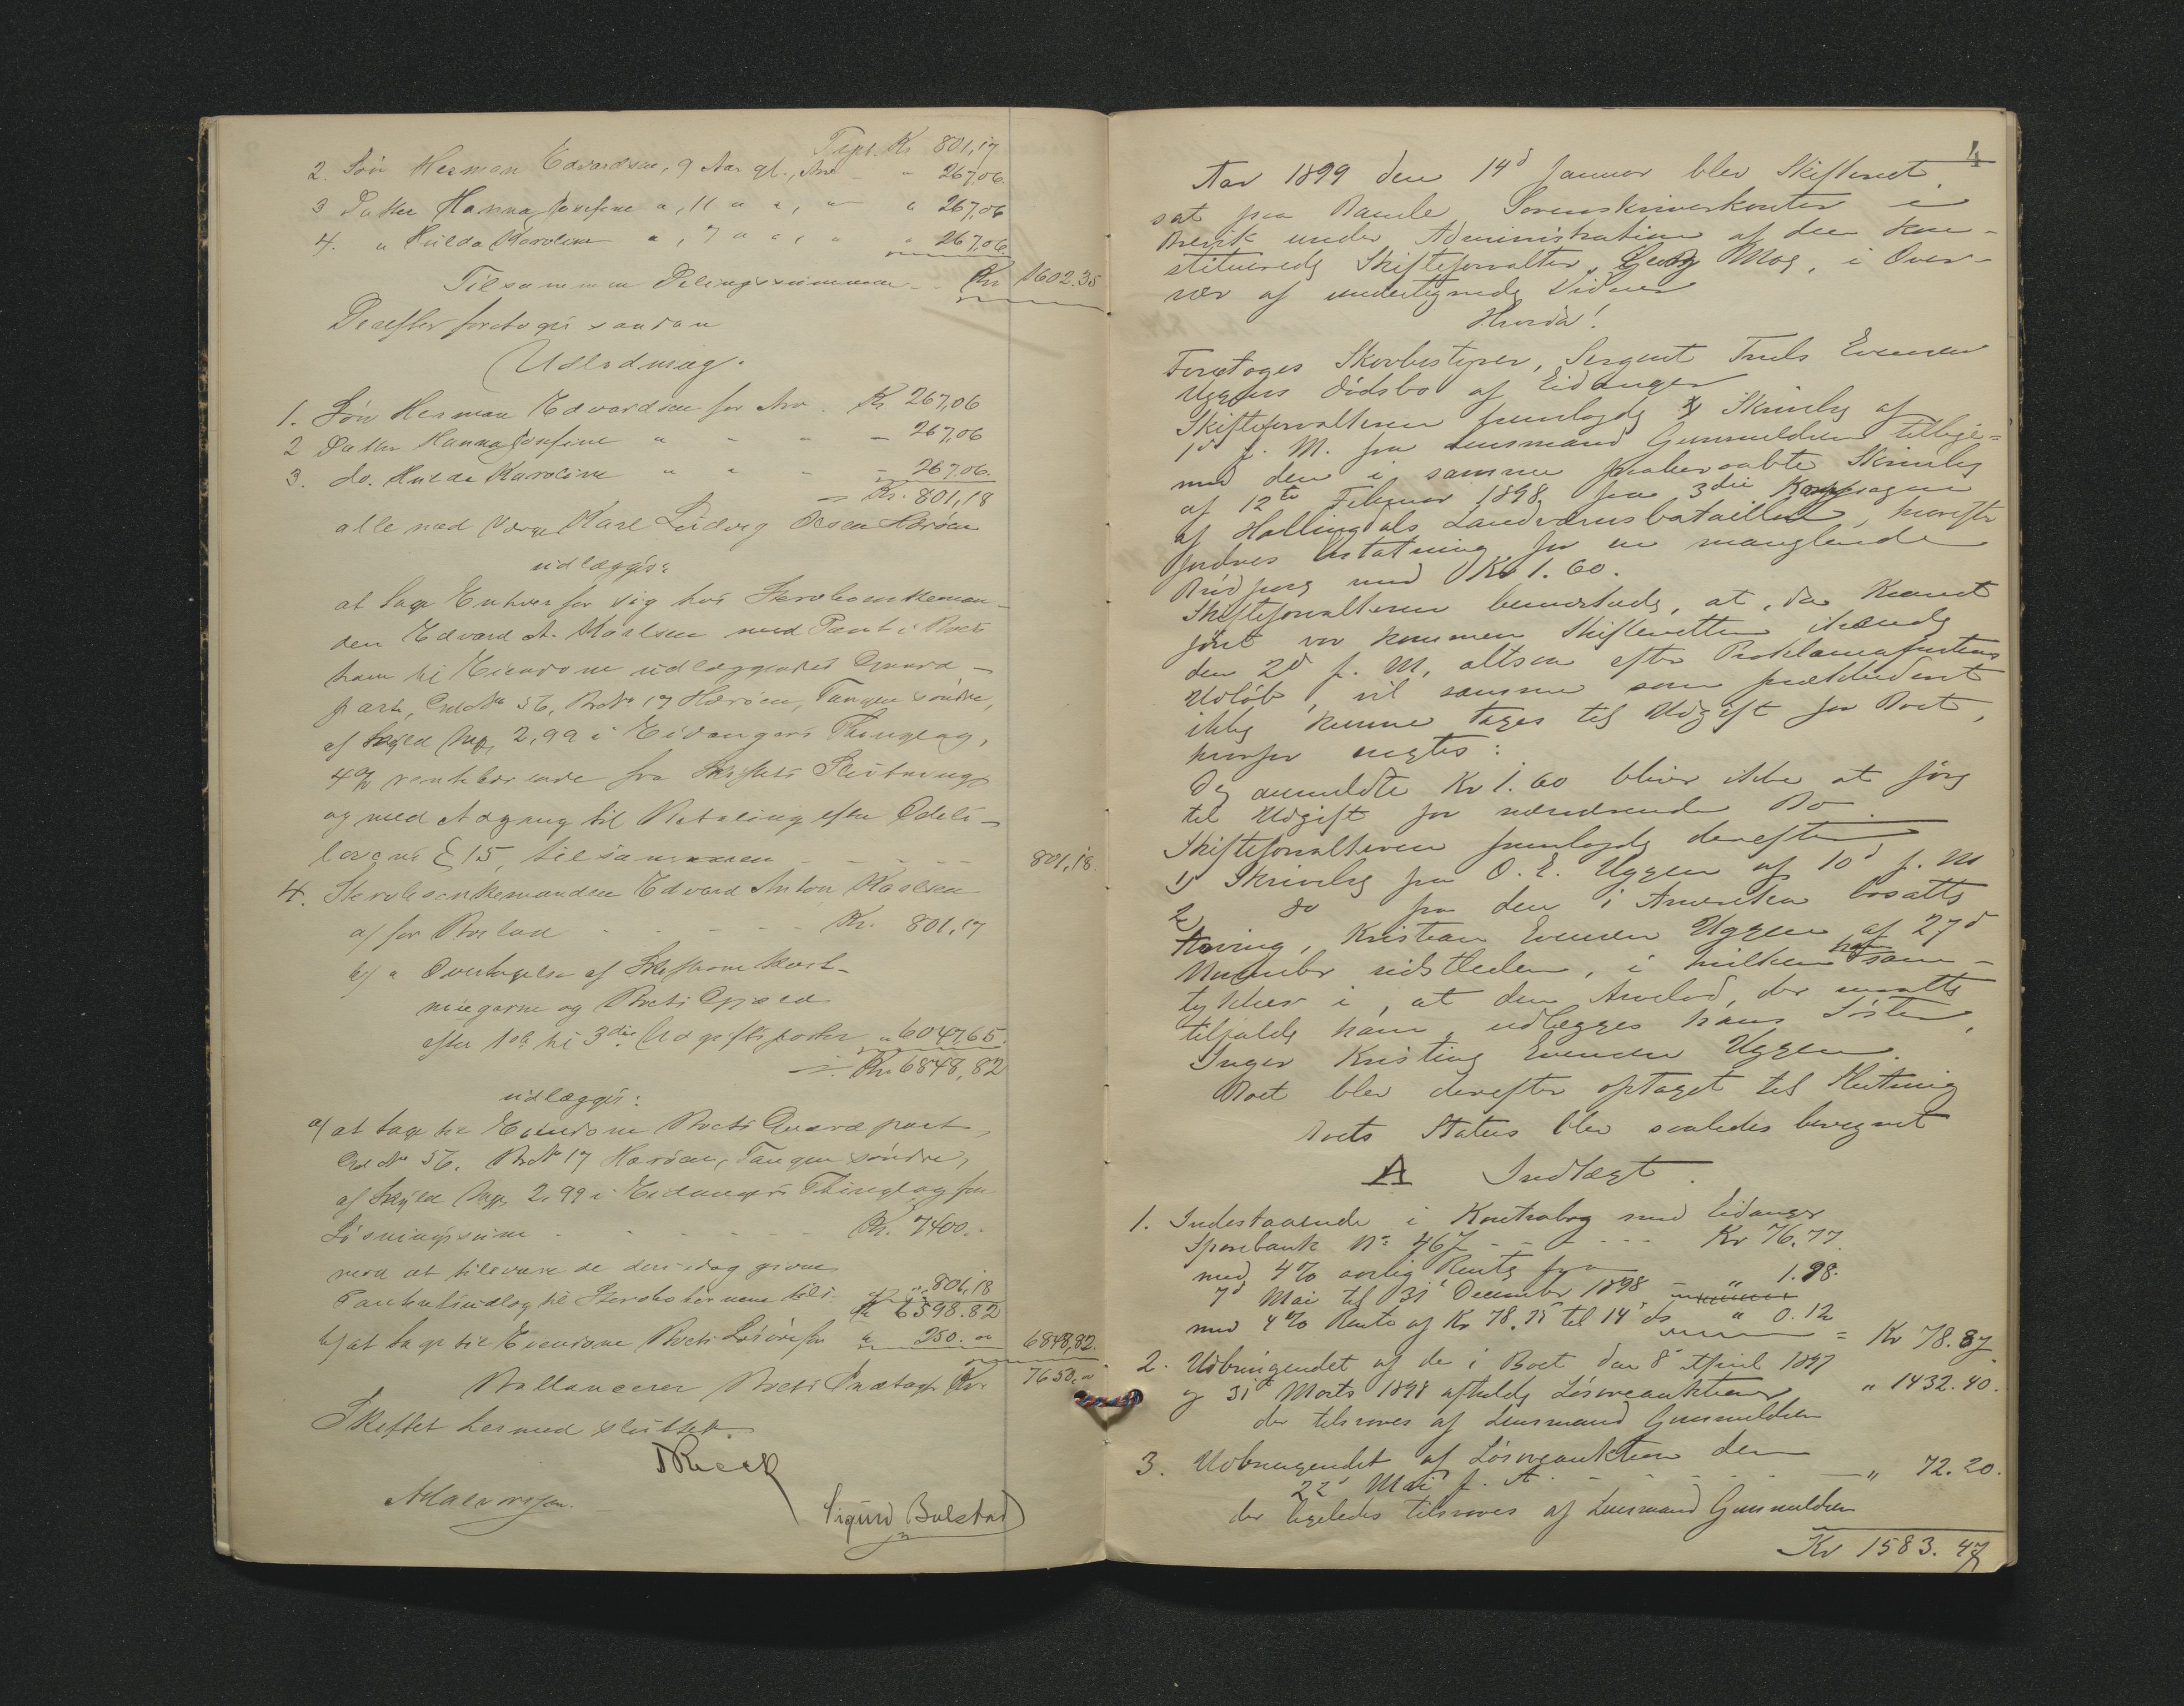 Tspt. Kr. 801,17
2. Søn Herman Edvardsen, 9 Aar gl., Arv - " 267,06.
3 Datter Hanna Josefine ", 11 " ", " " 267,06
4. " Hulda Karoline ", 7 " ", " " 267,06
Tilsammen Delingssummen - Kr 1602.35
Derefter foretoges saadan
Udlodning.
1. Søn Herman Edvardsen for Arv . Kr 267,06
2 Datter Hanna Josefine " - " - 267,06
3. do. Hulda Karoline " " - - 267,06.
= Kr. 801,18
alle med Værge Karl Ludvig Olsen Herøen
udlægges:
at tage Enhver for sig hos Stervbomkeman-
den Edvard A. Karlsen med Pant i Boets
ham til Eiendom udlæggendes Gaard-
part, Grd No 56, Br No 17 Herøen, Tangen søndre,
af Skyld Mrk 2,99 i Eidangers Thinglag,
4% rentebærende fra Skiftets Slutning
og med Adgang til Betaling efter Odels-
lovens § 15, tilsammen - - - - - 801,18.
4. Stervboenkemanden Edvard Anton Karlsen
a/ for Boslod - - - - - Kr. 801,17
b/ " Overtagelse af Skifteomkost-
ningerne og Boets Gjæld
efter 1ste til 3die Udgiftsposter " 6047,65.
= Kr 6848,82
udlægges:
a/ at tage til Eiendom Boets Gaardpart,
Grd No 56, Br No 17 Herøen, Tangen søndre,
af Skyld Mrk 2,99 i Eidangers Thinglag for
Løsningssum - - - - - Kr. 7400.-
med at tilsvare de dem idag givne
Panteudlæg til Stervbobørnene tils. " 801,18
Kr 6598.82
b/ at tage til Eiendom Boets Løsøre for " 250.00 6848,82.
Ballancerer Boets Indtægt Kr 7650,00
Skiftet hermed sluttet.
Reeck
A Halvorsen.
Sigurd Bolstad
4
Aar 1899 den 14d Januar blev Skifteret
sat paa Bamle Sorenskriverkontor i
Brevik under Administration af den kon-
stituerede Skifteforvalter, Georg Moe, i Over-
vær af undertegnede Vidner
Hvorda!
Foretoges Skovbestyrer, Sergent Truls Evensen
Uggens dødsbo af Eidanger
Skifteforvalteren fremlagde Skrivelse af
1d f. M. fra Lensmand Gunnuldsen tillige=
med den i samme paaberaabte Skrivelse
af 12te Februar 1898 fra 3die Kompagni
af Hallingdals Landværnsbataillon, hvorefter
fordres Erstatning for en manglende
Brødpose med Kr 1.60.
Skifteforvalteren bemærkede, at, da Kravet
først var kommen Skifteretten ihænde
den 2d f. M, altsaa efter Proklamafristens
Udløb, vil samme som prækluderet
ikke kunne tages til Udgift for Boet,
hvorfor eragtes:
De anmeldte Kr 1.60 bliver ikke at føre
til Udgift for nærværende Bo.
Skifteforvalteren fremlagde derefter
1) Skrivelse fra O. E. Uggen af 10d f. M
2) do fra den i Amerika bosatte
Arving, Kristian Evensen Uggen af 27d
November sidstleden, i hvilken han sam-
tykker i, at den Arvelod, der maatte
tilfalde ham, udlægges hans Søster,
Inger Kristine Evensen Uggen.
Boet blev derefter optaget til Slutning
Boets Status blev saaledes beregnet
A Indtægt.
1. Indestaaende i Kontrabog med Eidanger
Sparebank No 467 - - - - - Kr 76.77.
med 4% aarlig Rente fra
7d Mai til 31d December 1898 - " 1.98.
med 4% Rente af Kr 78.75 til 14d ds " 0.12
= Kr 78.87.
2. Udbringendet af de i Boet den 8d April 1897
og 31d Marts 1898 afholdte Løsøreauktioner " 1432.40.
der tilsvares af Lensmand Gunnuldsen
3. Udbringendet af Løsøreauktion den
22d Mai f. A. - - - - - " 72.20.
der ligeledes tilsvares af Lensmand Gunnuldsen
Kr 1583.47